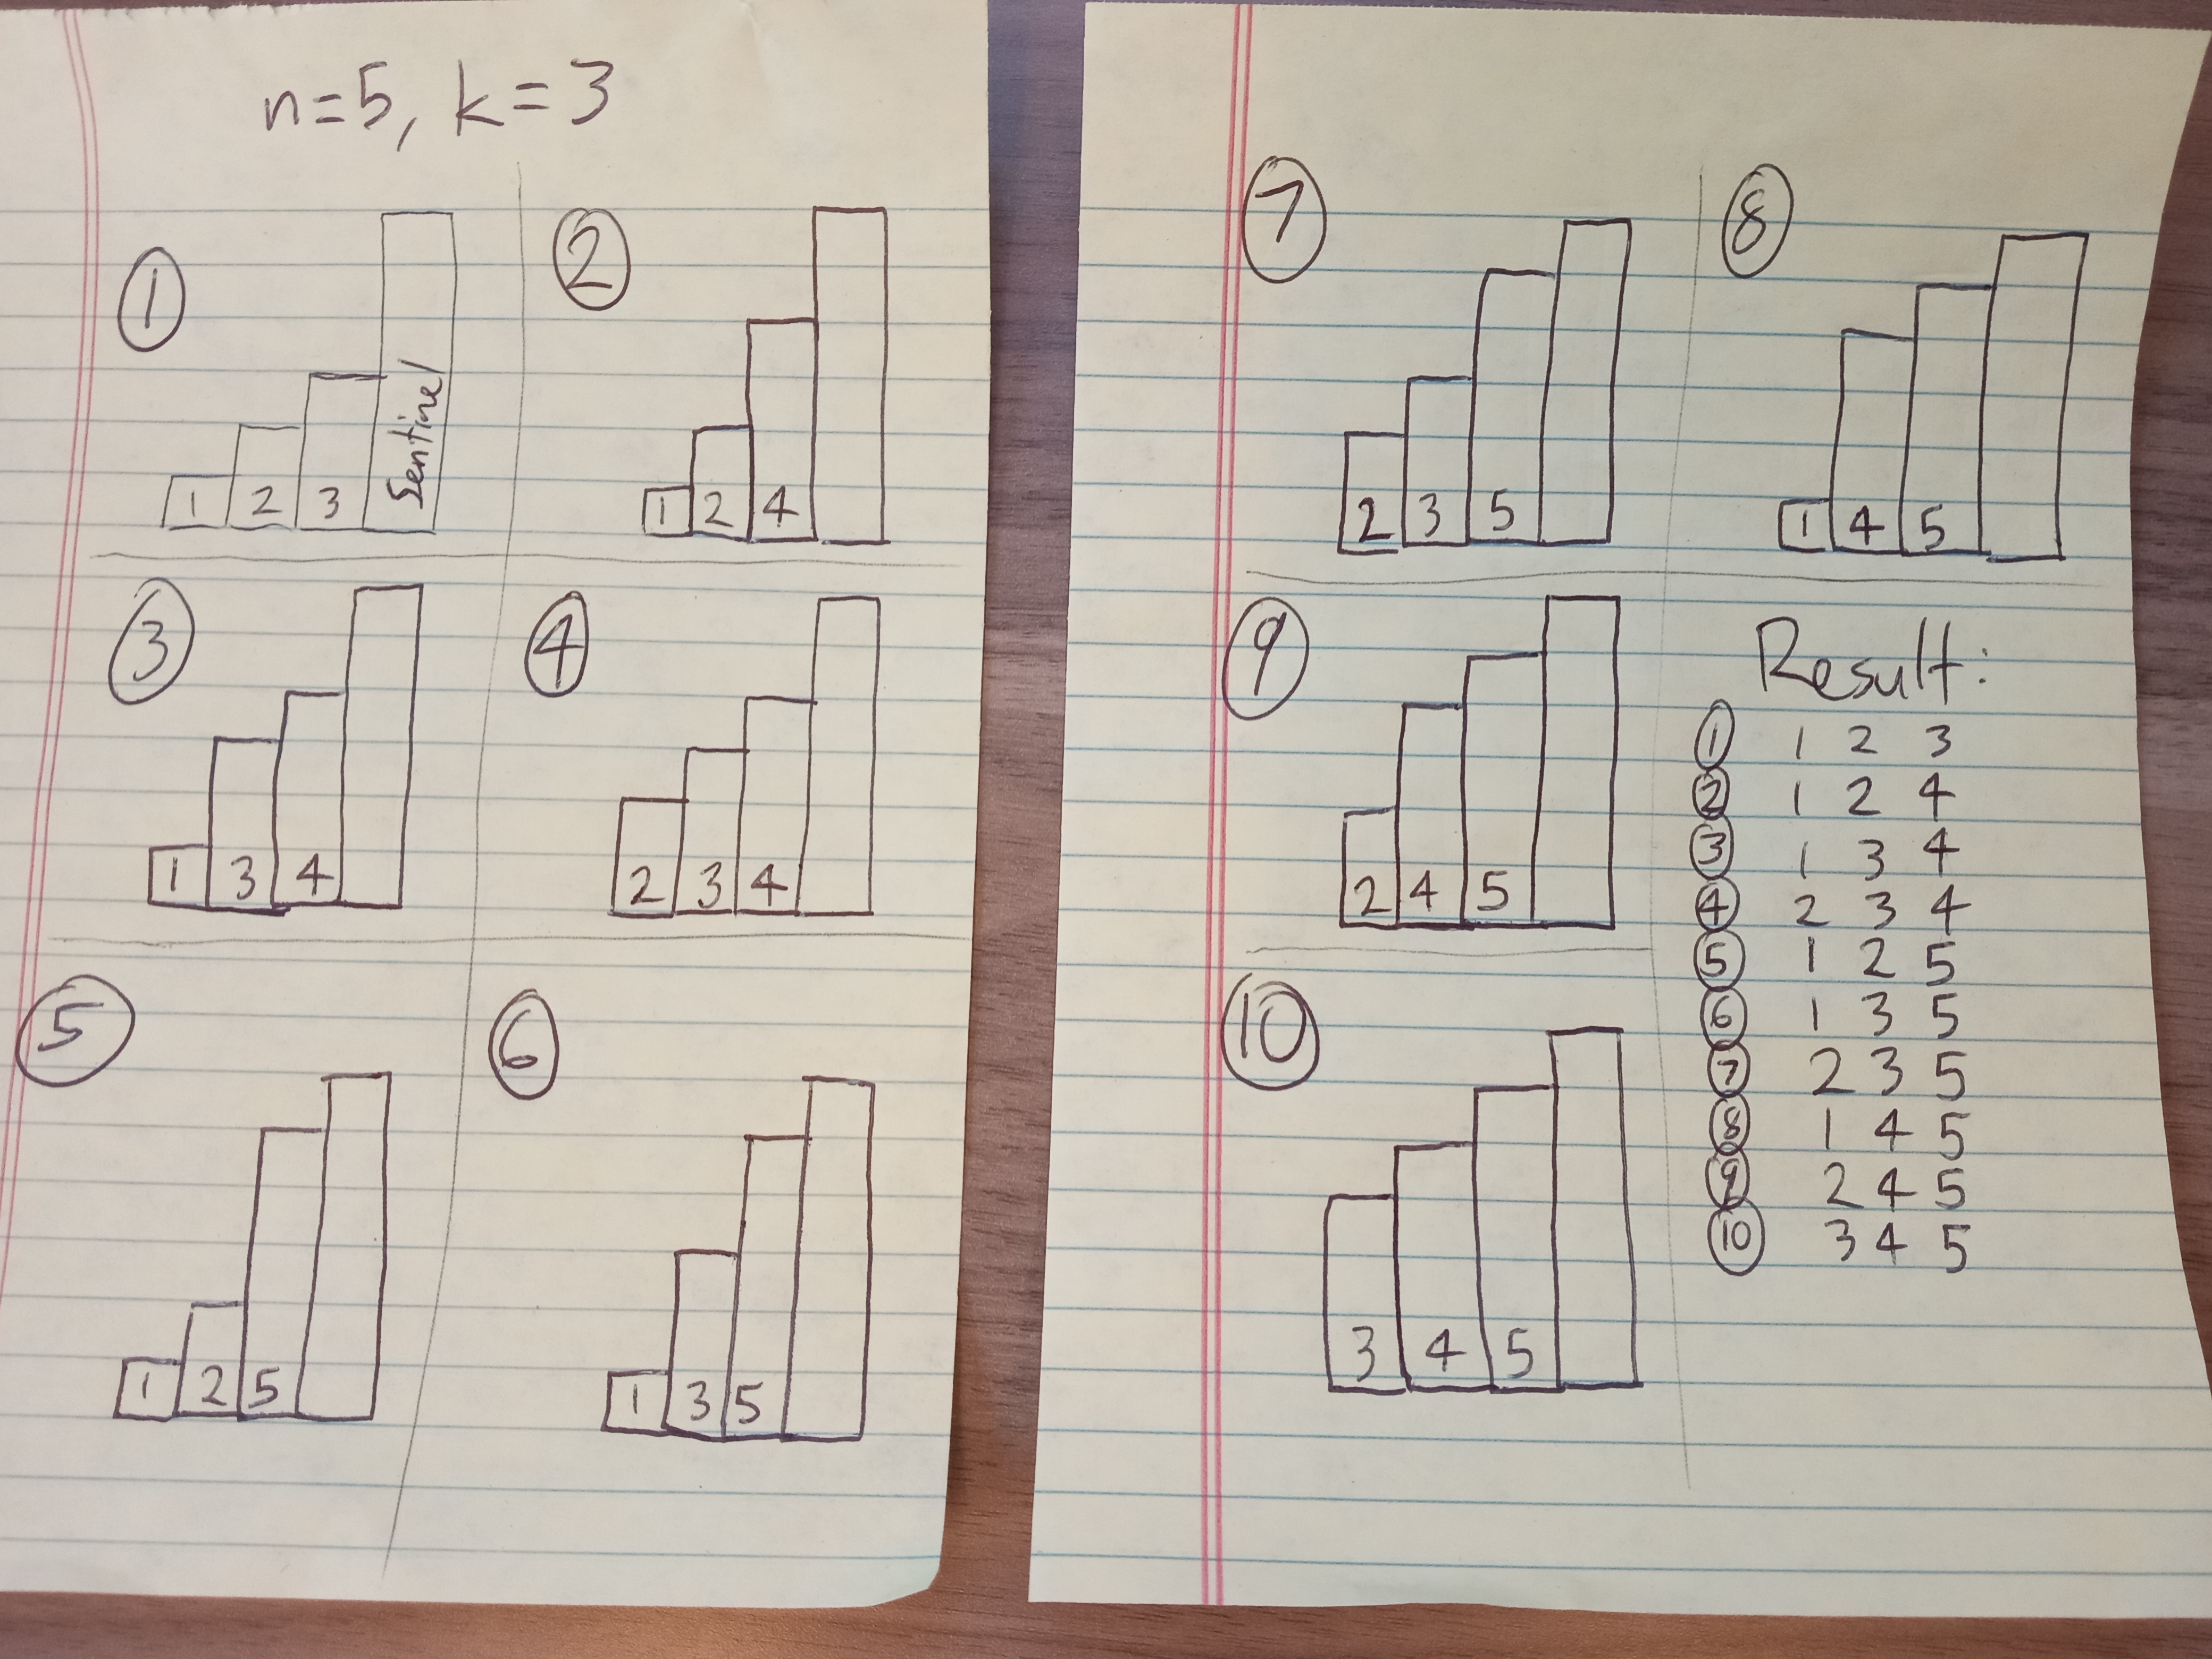 n=5, k=3
①
1 2 3 Sentinel
②
1 2 4
③
1 3 4
④
2 3 4
⑤
1 2 5
⑥
1 3 5
⑦
2 3 5
⑧
1 4 5
⑨
2 4 5
⑩
3 4 5
Result:
① 1 2 3
② 1 2 4
③ 1 3 4
④ 2 3 4
⑤ 1 2 5
⑥ 1 3 5
⑦ 2 3 5
⑧ 1 4 5
⑨ 2 4 5
⑩ 3 4 5